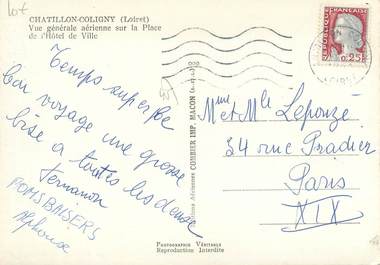 lot
CHATILLON-COLIGNY (Loiret)
Vue générale aérienne sur la Place
de l'Hôtel de Ville
REPUBLIQUE FRANCAISE
0,25
Temps superbe
bon voyage une grosse
bise a toutes les deux
Fernanon
POMSBAISERS
Alphonse
COMBIER IMP. MACON
Mme et Mle Lepouzé
34 rue Pradier
Paris
XIX
PHOTOGRAPHIE VÉRITABLE
Reproduction Interdite